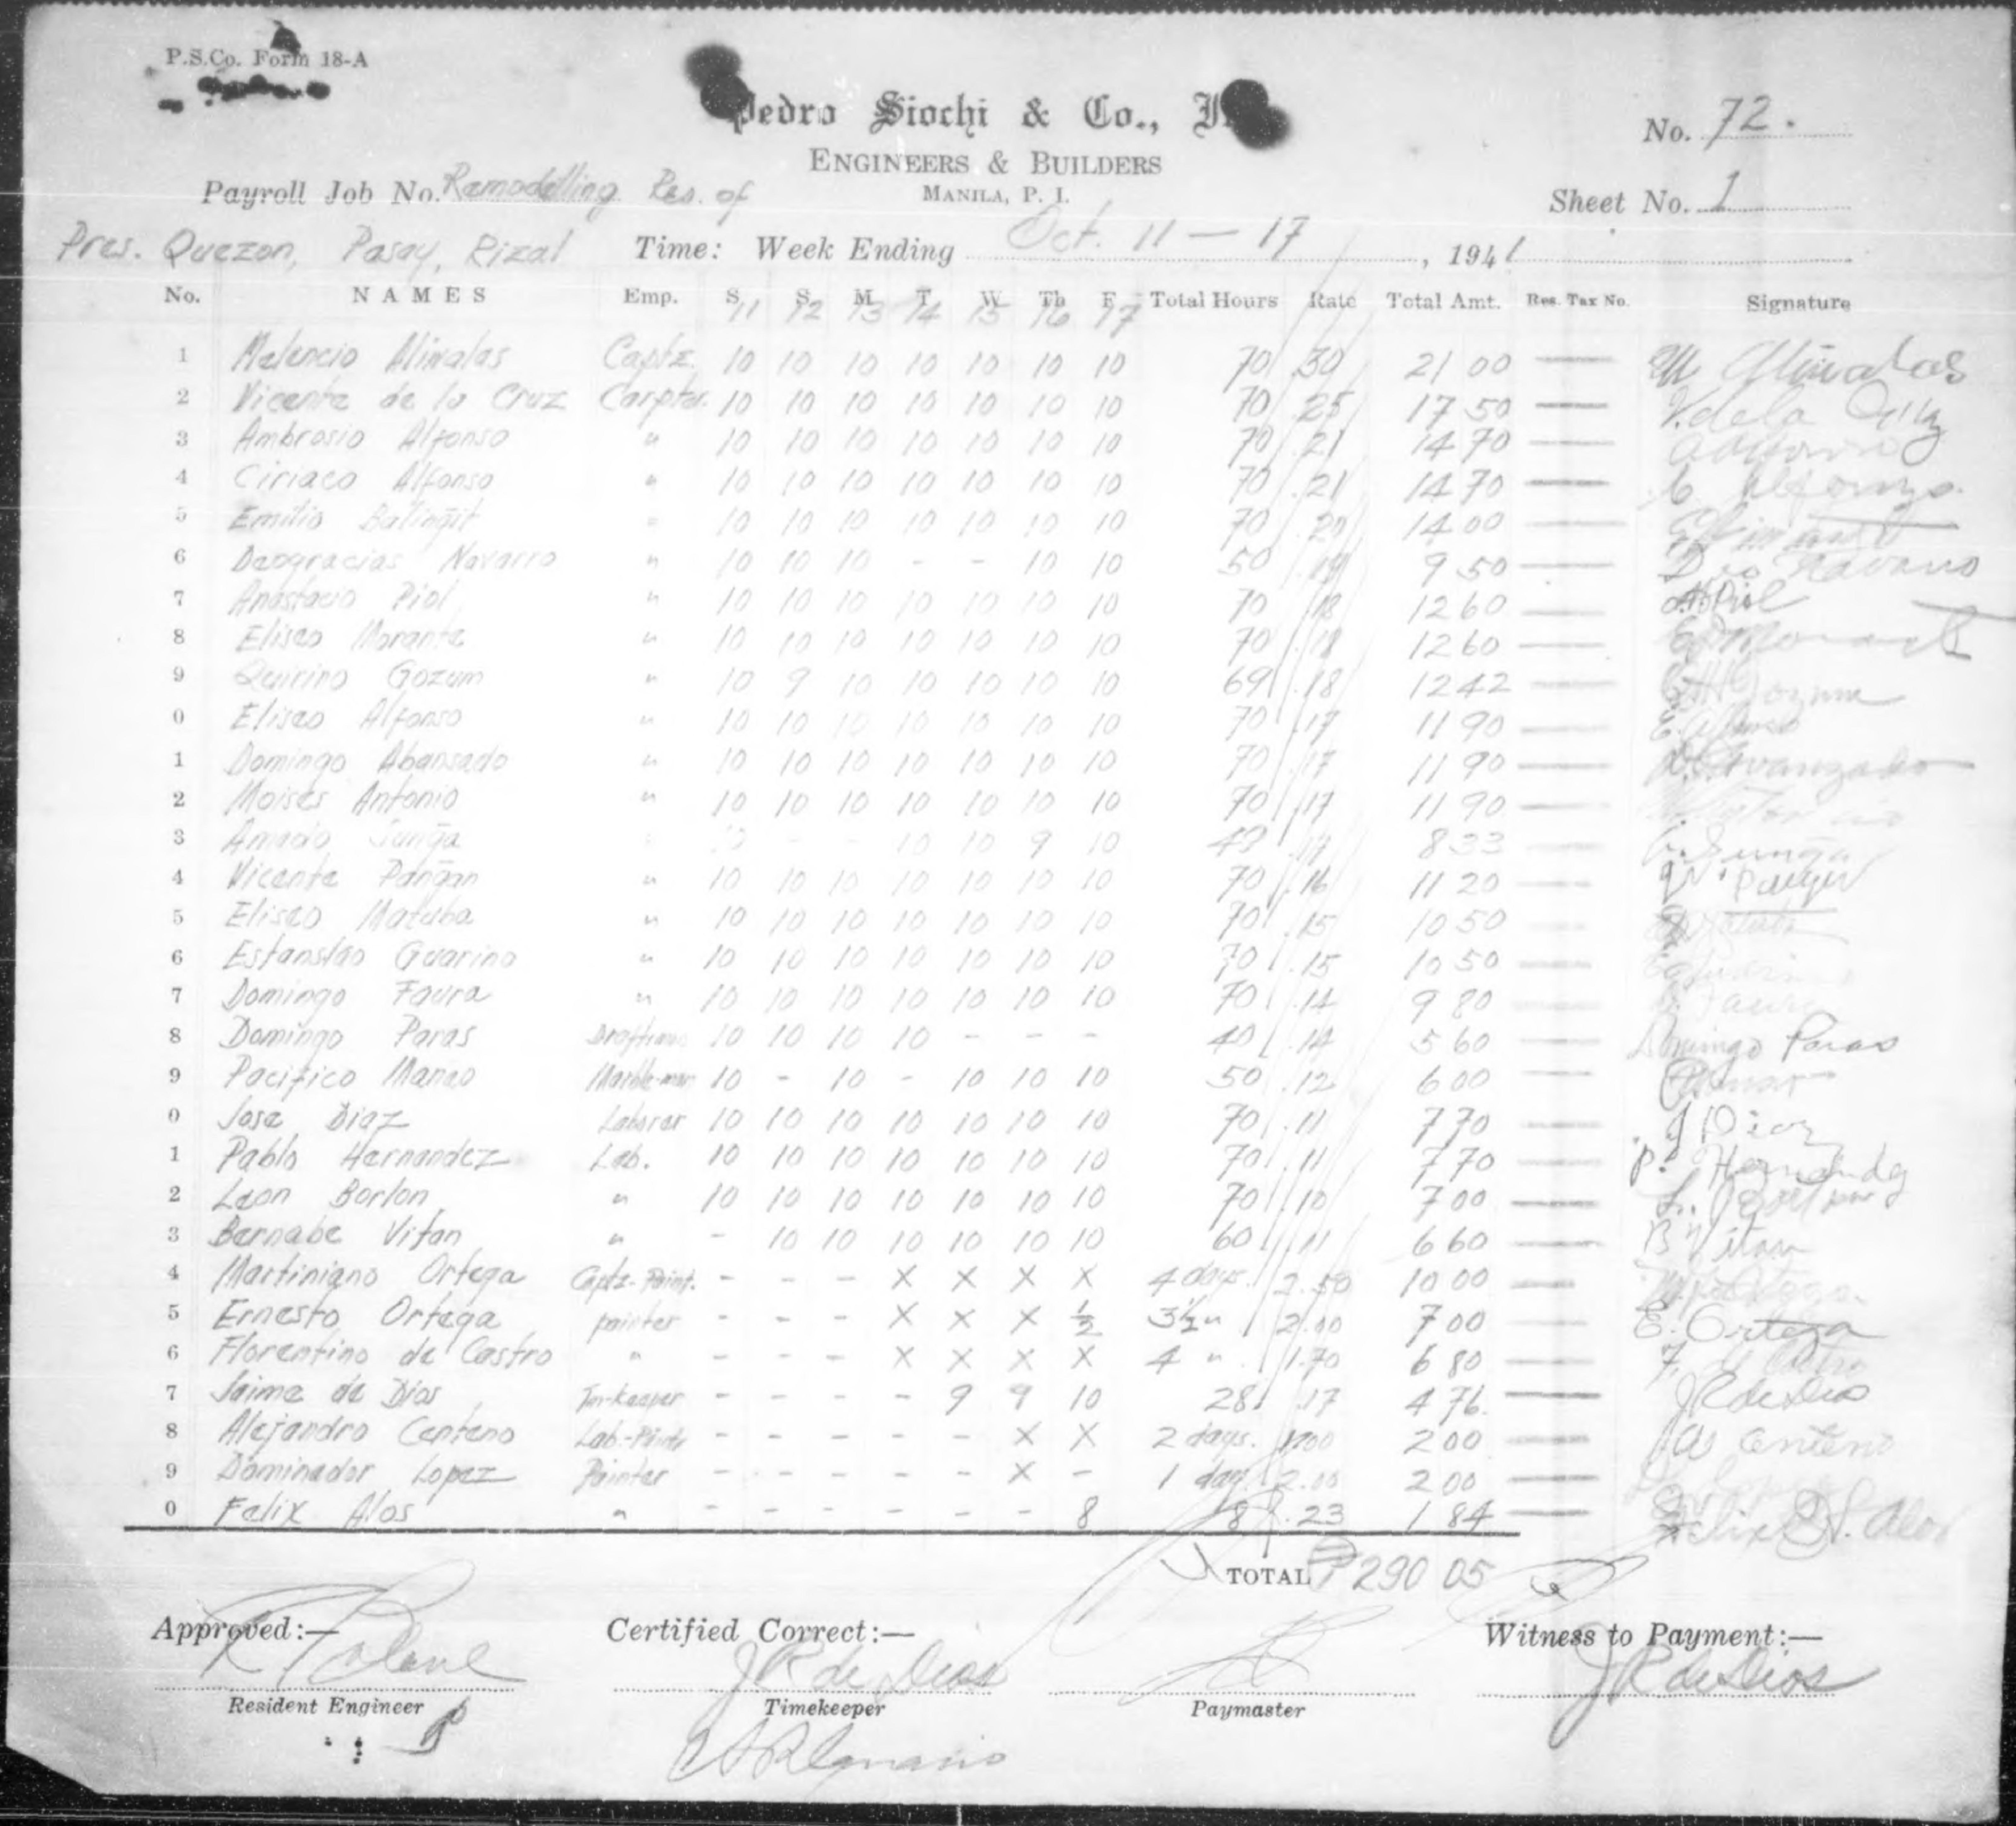 P.S.Co. Form 18-A
Pedro Siochi & Co.,
ENGINEERS & BUILDERS
MANILA, P. I.
No. 72.
Sheet No. 1
Payroll Job No. Remodelling Res. of
Pres. Quezon, Pasay, Rizal Time: Week Ending Oct. 11 — 17, 1941
No. NAMES Emp. S S M T W Th F Total Hours Rate Total Amt. Res. Tax No. Signature
11 12 13 14 15 16 17
1 Melencio Alinalas Captz. 10 10 10 10 10 10 10 70 .30 21 00 — M Alinalas
2 Vicente de la Cruz Carpter. 10 10 10 10 10 10 10 70 .25 17 50 — V. dela Cruz
3 Ambrosio Alfonso " 10 10 10 10 10 10 10 70 .21 14 70 —
4 Ciriaco Alfonso " 10 10 10 10 10 10 10 70 .21 14 70 — C Alfonso
5 Emilio Balingit " 10 10 10 10 10 10 10 70 .20 14 00 —
6 Deogracias Navarro " 10 10 10 - - 10 10 50 .19 9 50 — Deo Navarro
7 Anastacio Piol " 10 10 10 10 10 10 10 70 .18 12 60 — A Piol
8 Eliseo Morante " 10 10 10 10 10 10 10 70 .18 12 60 —
9 Quirino Gozum " 10 9 10 10 10 10 10 69 .18 12 42 — Gozum
0 Eliseo Alfonso " 10 10 10 10 10 10 10 70 .17 11 90 — E. Alfonso
1 Domingo Abansado " 10 10 10 10 10 10 10 70 .17 11 90 — Avanzado
2 Moises Antonio " 10 10 10 10 10 10 10 70 .17 11 90 —
3 Amado Sunga " 10 - - 10 10 9 10 49 .17 8 33 — A. Sunga
4 Vicente Pangan " 10 10 10 10 10 10 10 70 .16 11 20 —
5 Eliseo Matuba " 10 10 10 10 10 10 10 70 .15 10 50 —
6 Estanslao Guarino " 10 10 10 10 10 10 10 70 .15 10 50 —
7 Domingo Faura " 10 10 10 10 10 10 10 70 .14 9 80 — Faura
8 Domingo Paras 10 10 10 10 - - - 40 .14 5 60 — Domingo Paras
9 Pacifico Manao Marble-man 10 - 10 - 10 10 10 50 .12 6 00 —
0 Jose Diaz Laborer 10 10 10 10 10 10 10 70 .11 7 70 — J Diaz
1 Pablo Hernandez Lab. 10 10 10 10 10 10 10 70 .11 7 70 — P. Hernandez
2 Leon Borlon " 10 10 10 10 10 10 10 70 .10 7 00 —
3 Bernabe Vitan " - 10 10 10 10 10 10 60 .11 6 60 — B Vitan
4 Martiniano Ortega Captz-Paint. - - - X X X X 4 days. 2.50 10 00 —
5 Ernesto Ortega painter - - - X X X ½ 3½ " 2.00 7 00 — E. Ortega
6 Florentino de Castro " - - - X X X X 4 ". 1.70 6 80 — F. de Castro
7 Jaime de Dios Tm-keeper - - - - 9 9 10 28 .17 4 76 — JR de Dios
8 Alejandro Centeno - - - - - X X 2 days. 1.00 2 00 — A Centeno
9 Dominador Lopez Painter - - - - - X - 1 day. 2.00 2 00 —
0 Felix Alos " - - - - - - 8 8 .23 1 84 — Felix Alos
TOTAL ₱ 290 05
Approved:— Certified Correct:— Witness to Payment:—
JR de Dios JR de Dios
Resident Engineer Timekeeper Paymaster